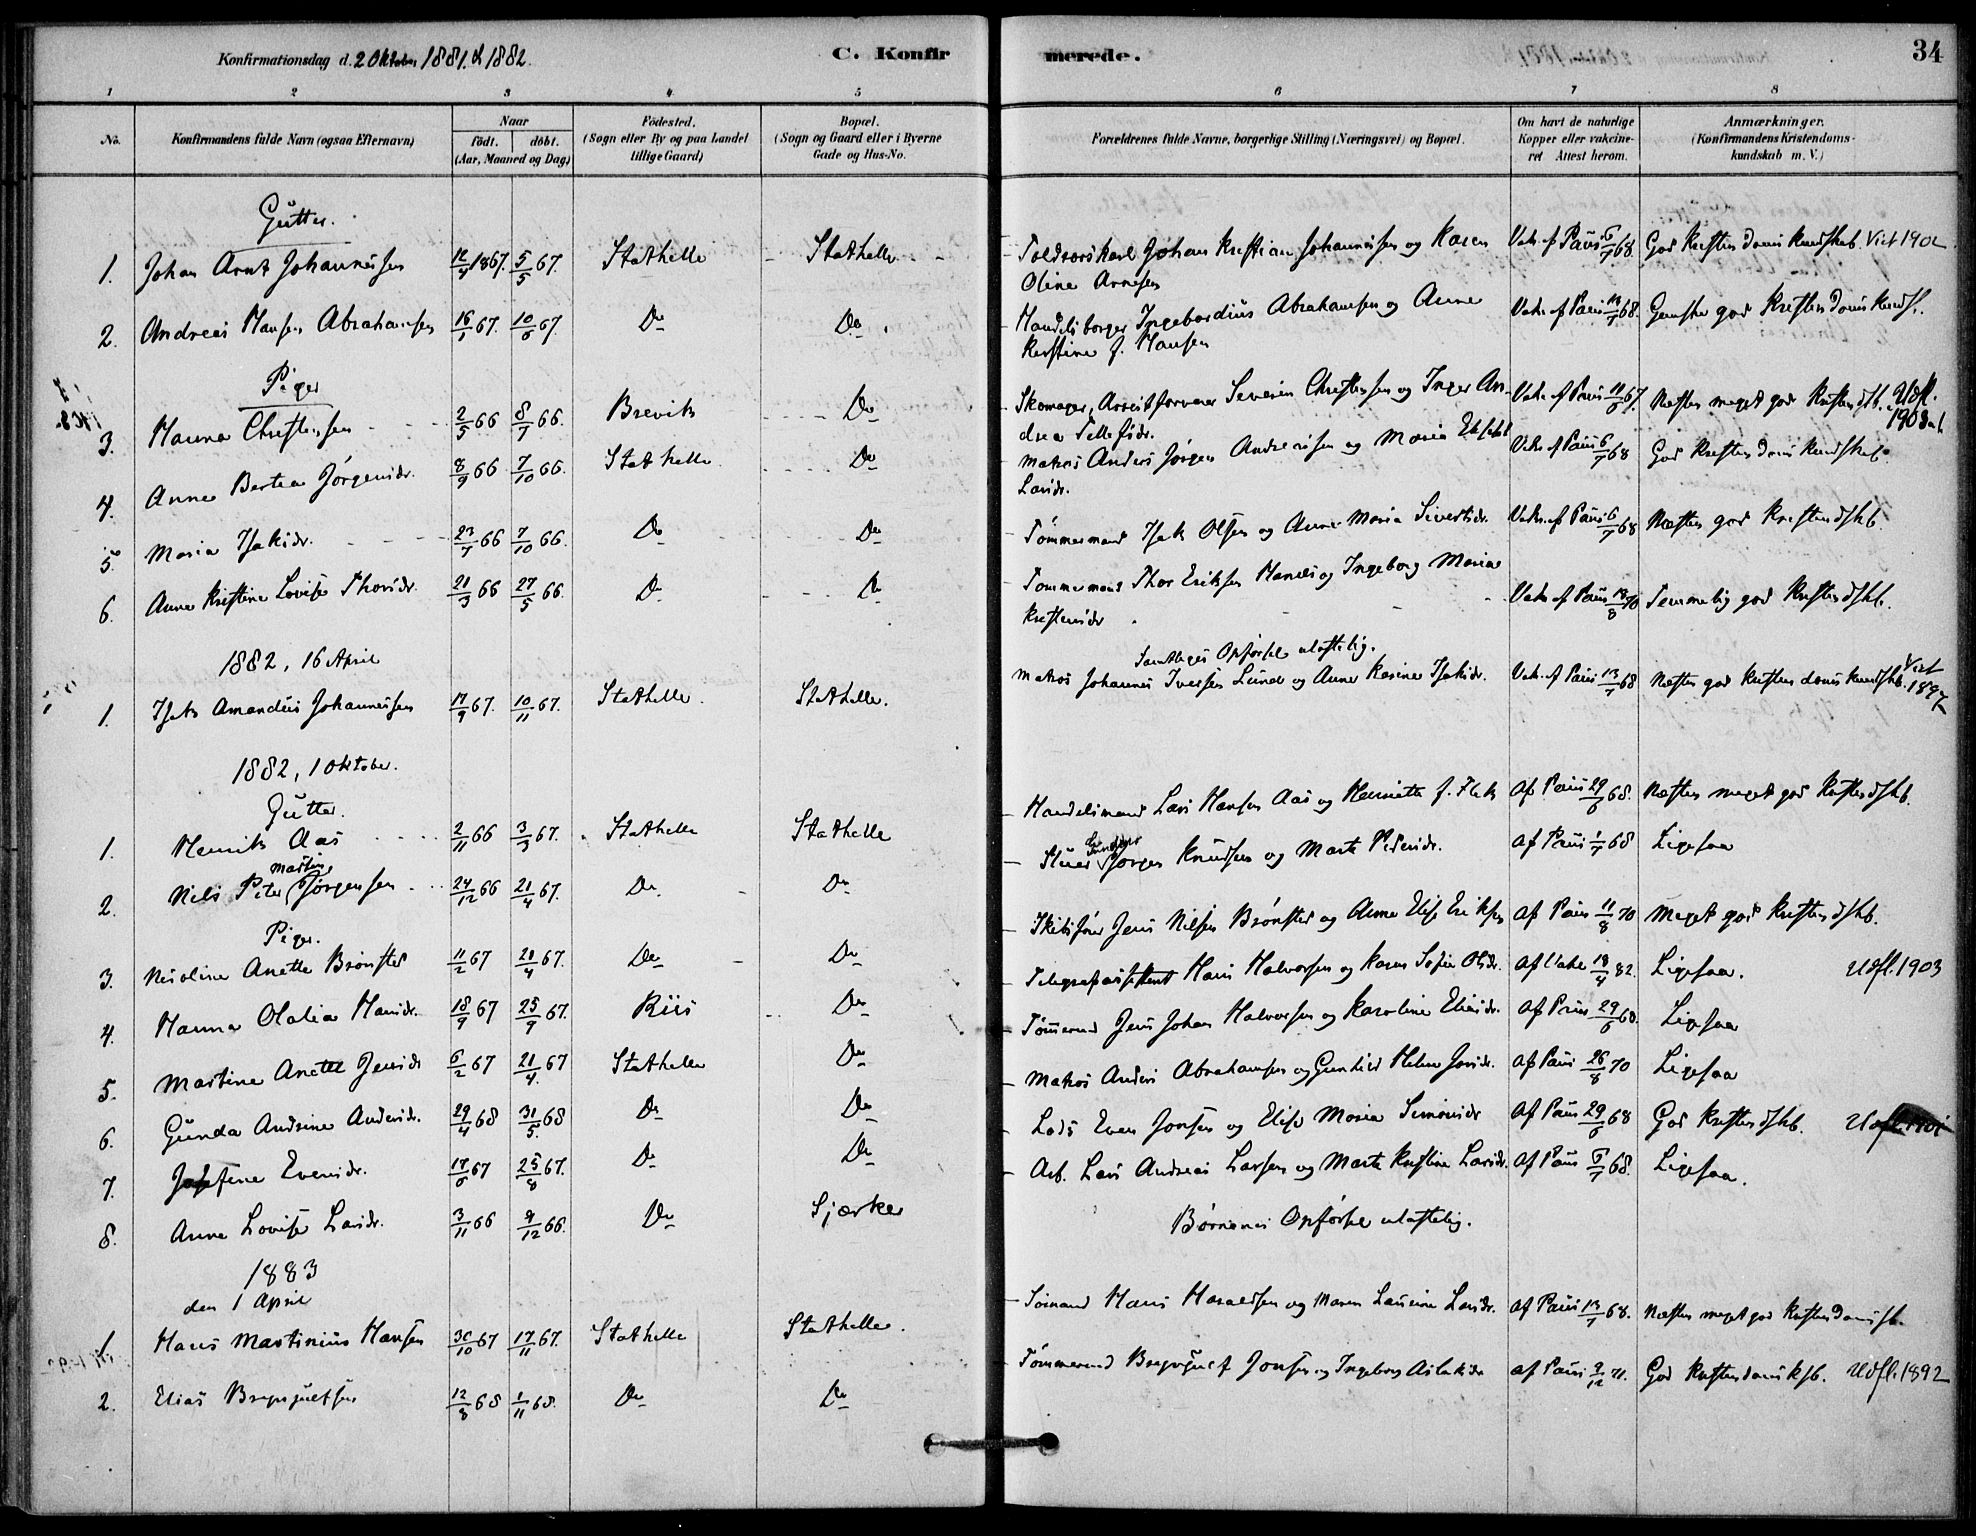 Konfirmationsdag d. 2 Oktober 1881 & 1882. C. Konfirmerede. 34
1 2 3 4 5 6 7 8
No. Konfirmandens fulde Navn (ogsaa Efternavn) Naar födt. döbt. (Aar, Maaned og Dag) Födested. (Sogn eller By og paa Landet tillige Gaard) Bopæl. (Sogn og Gaard eller i Byerne Gade og Hus-No. Forældrenes fulde Navne, borgerlige Stilling (Næringsvei) og Bopæl. Om havt de naturlige Kopper eller vakcineret Attest herom. Anmærkninger. (Konfirmandens Kristendomskundskab m. V.)
Gutter.
1. Johan Arnt Johannessen 12/3 1867. 5/5 67. Stathelle Stathelle Toldroerskarl Johan Kristian Johannessen og Karen Oline Arnesen Vak. af Paus 6/7 68. God Kristendomskundskab. Viet 1902
2. Andreas Hansen Abrahamsen 16/1 67. 10/6 67. Do Do. Handelsborger Ingebordius Abrahamsen og Anne Kirstine f. Hansen Vak. af Paus 14/7 68. Ganske god Kristendomskundsk.
Piger
3. Hanna Christensen 2/5 66 8/7 66. Brevik Do Skomager, Severin Christensen og Inger Andrea Tellefsdr. Vak. af Paus 11/6 67. Næsten meget god Kristendskb. Udfl. 1903
4. Anne Bertea Jørgensdr. 8/9 66 7/10 66. Stathelle Do Matros Anders Jørgen Andreassen og Maria Larsdr. Vak. af Paus 6/7 68 God Kristendomskundskab.
5. Maria Isaksdr. 23/7 66 7/10 66. Do Do Tømmermand Isak Olsen og Anne Maria Sivertsdr. Vak. af Paus 6/7 68 Næsten god Kristendskb
6. Anne Kristine Lovise Thorsdr. 21/3 66 27/5 66. Do Do Tømmermand Thor Eriksen og Ingeborg Maria Kristensdr. Vak. af Paus 18/8 70 Temmelig god Kristendskb.
Samtliges Opførsel ulastelig.
1882, 16 April
1. Isak Amandus Johannessen 17/9 67. 10/11 67. Stathelle. Stathelle. Matros Johannes Iversen Lunde og Anne Karine Isaksdr. Vak. af Paus 13/7 68 Næsten god Kristendomskundskb. Viet 1897
1882, 1 Oktober.
Gutter.
1. Henrik Aas 2/11 66 3/3 67. Stathelle Stathelle Handelsmand Lars Hansen Aas og Henriette f. Flek af Paus 29/6 68. Næsten meget god Kristendskb.
2. Nils Peter Martin Jørgensen 24/12 66 21/4 67. Do Do Stuer Gunder Jørgen Knudsen og Marte Pedersdr. af Paus 1/7 68 Ligesaa
Piger.
3. Nicoline Anette Brønsted 11/2 67 21/4 67. Do Do Skibsfører Jens Nilsen Brønsted og Anne Elise Eriksen af Paus 11/8 70 Meget god Kristendskb.
4. Hanna Olalia Hansdr. 18/9 67 25/9 67. Riis Do Telegrafassistent Hans Halvorsen og Karen Sofie Olsdr. 18/4 82. Ligesaa. Udfl. 1903
5. Martine Anette Jensdr 6/2 67 21/4 67 Stathelle Do Tømmermd Jens Johan Halvorsen og Karoline Eliasdr. af Paus 29/6 68. Ligesaa
6. Gunda Andrine Andersdr. 29/4 68 31/5 68 Do Do Matros Anders Abrahamsen og Gunhild Helene Jonsdr. af Paus 26/8 70 Ligesaa
7. Josefine Evensdr. 17/6 67 25/8 67. Do Do Lods Even Jonsen og Elise Maria Simonsdr af Paus 29/6 68 God Kristendskb.
8. Anne Lovise Larsdr. 3/11 66 9/12 66. Do Sjærker Arb. Lars Andreas Larsen og Marte Kristine Larsdr. af Paus 6/7 68. Ligesaa.
Børnenes Opførsel ulastelig.
1883
den 1 April
1 Hans Martinius Hansen 30/10 67 17/11 67. Stathelle Stathelle. Sømand Hans Haraldsen og Maren Laurine Larsdr. af Paus 13/7 68. Næsten meget god Kristendomskb.
2. Elias Brynjulfsen 12/8 68 1/11 68. Do Do Tømmermd Brynjulf Jonsen og Ingeborg Aslaksdr af Paus 9/12 71. God Kristendomskb. Udfl. 1892